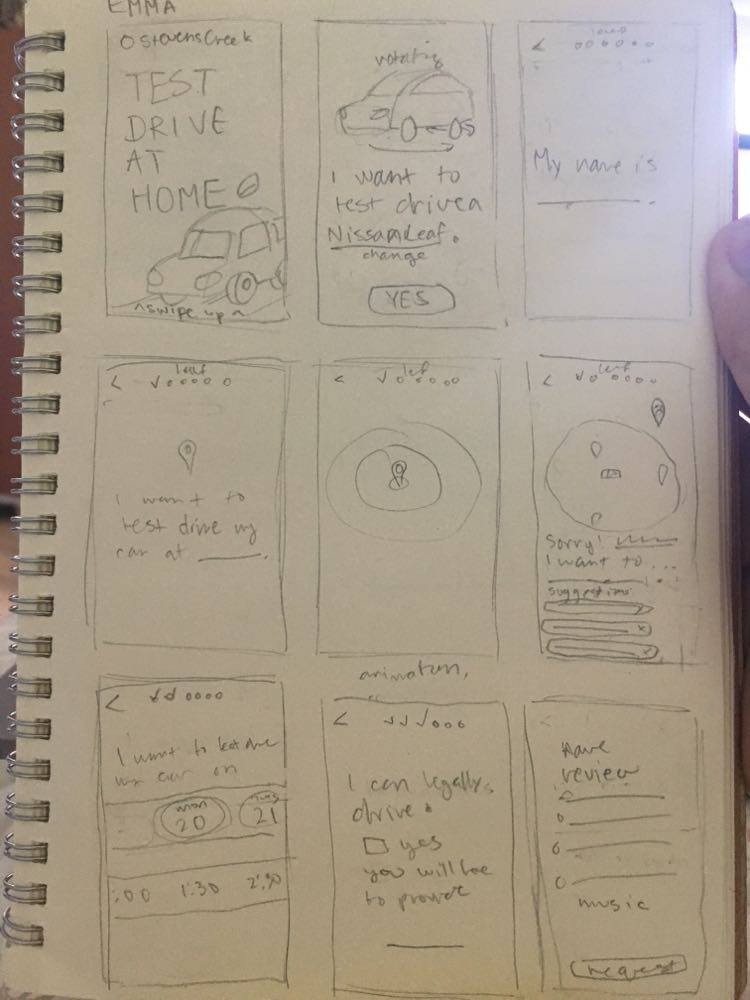 EMMA
O StevensCreek
TEST
DRIVE
AT
HOME
^swipe up^
rotating
I want to
test drive a
Nissan Leaf.
change
YES
<
My name is
<
leaf
I want to
test drive my
car at
<
leaf
animation,
<
leaf
Sorry!
I want to...
suggestions
<
I want to test drive
my car on
mon
20
tues
21
:00 1:30 2:30
<
I can legally
drive.
yes
you will be
to provide
Have
review
music
request